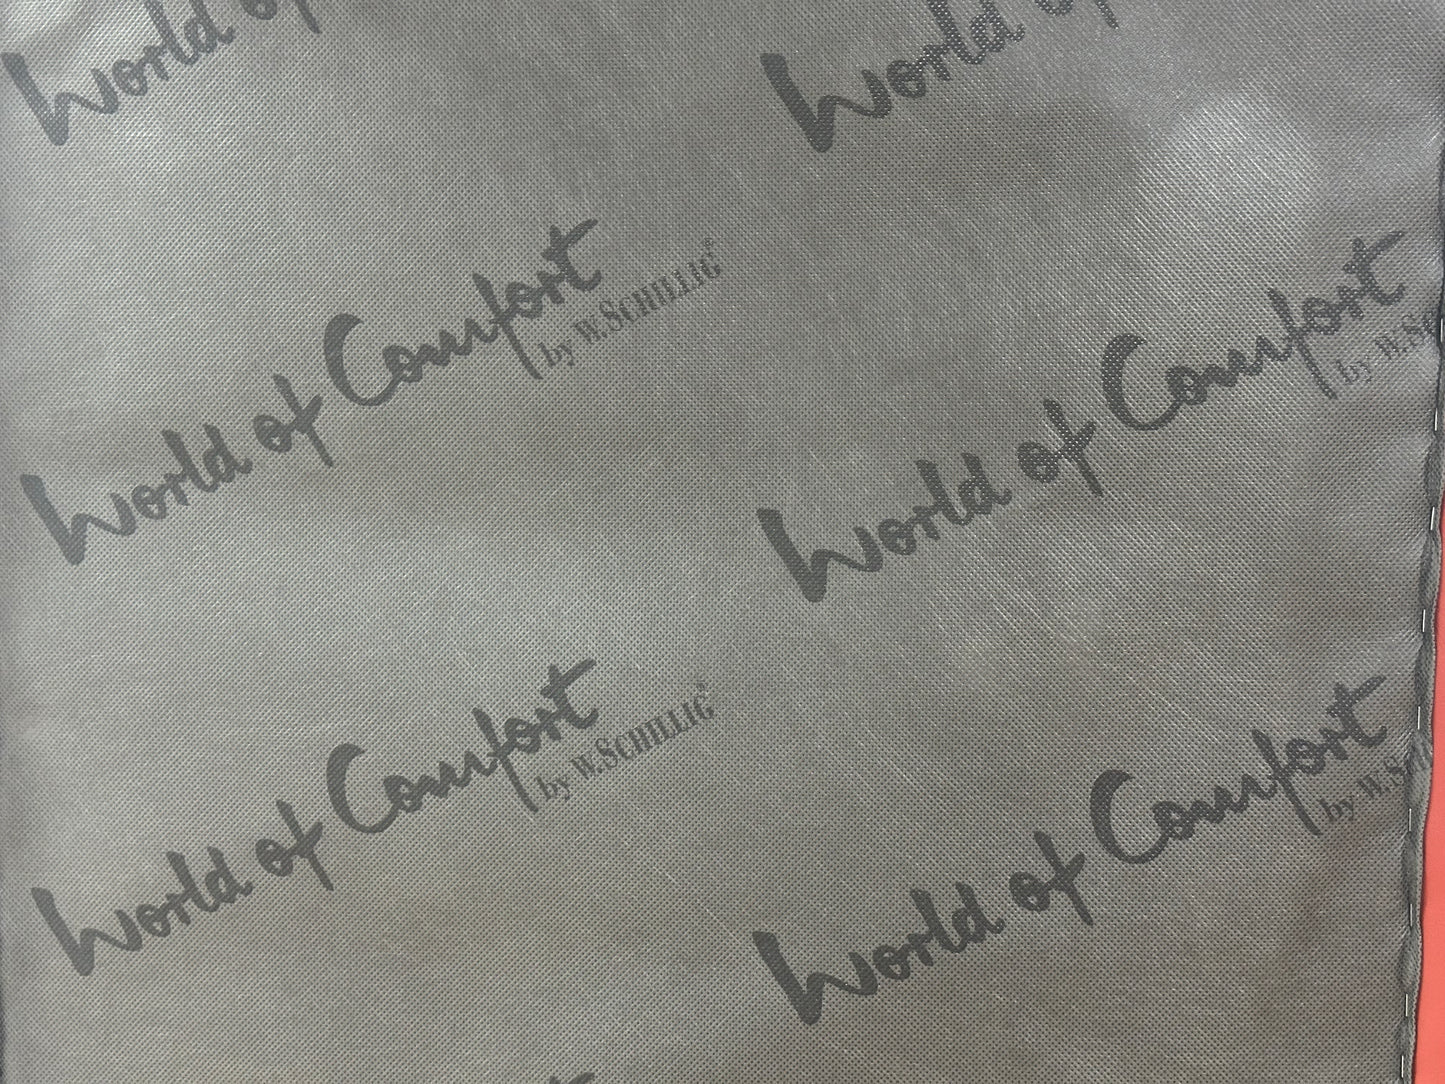 World of
World of
World of Comfort
by W.SCHILLIG®
World of Comfort
by W.SC
World of Comfort
by W.SCHILLIG®
World of Comfort
by W.SCH